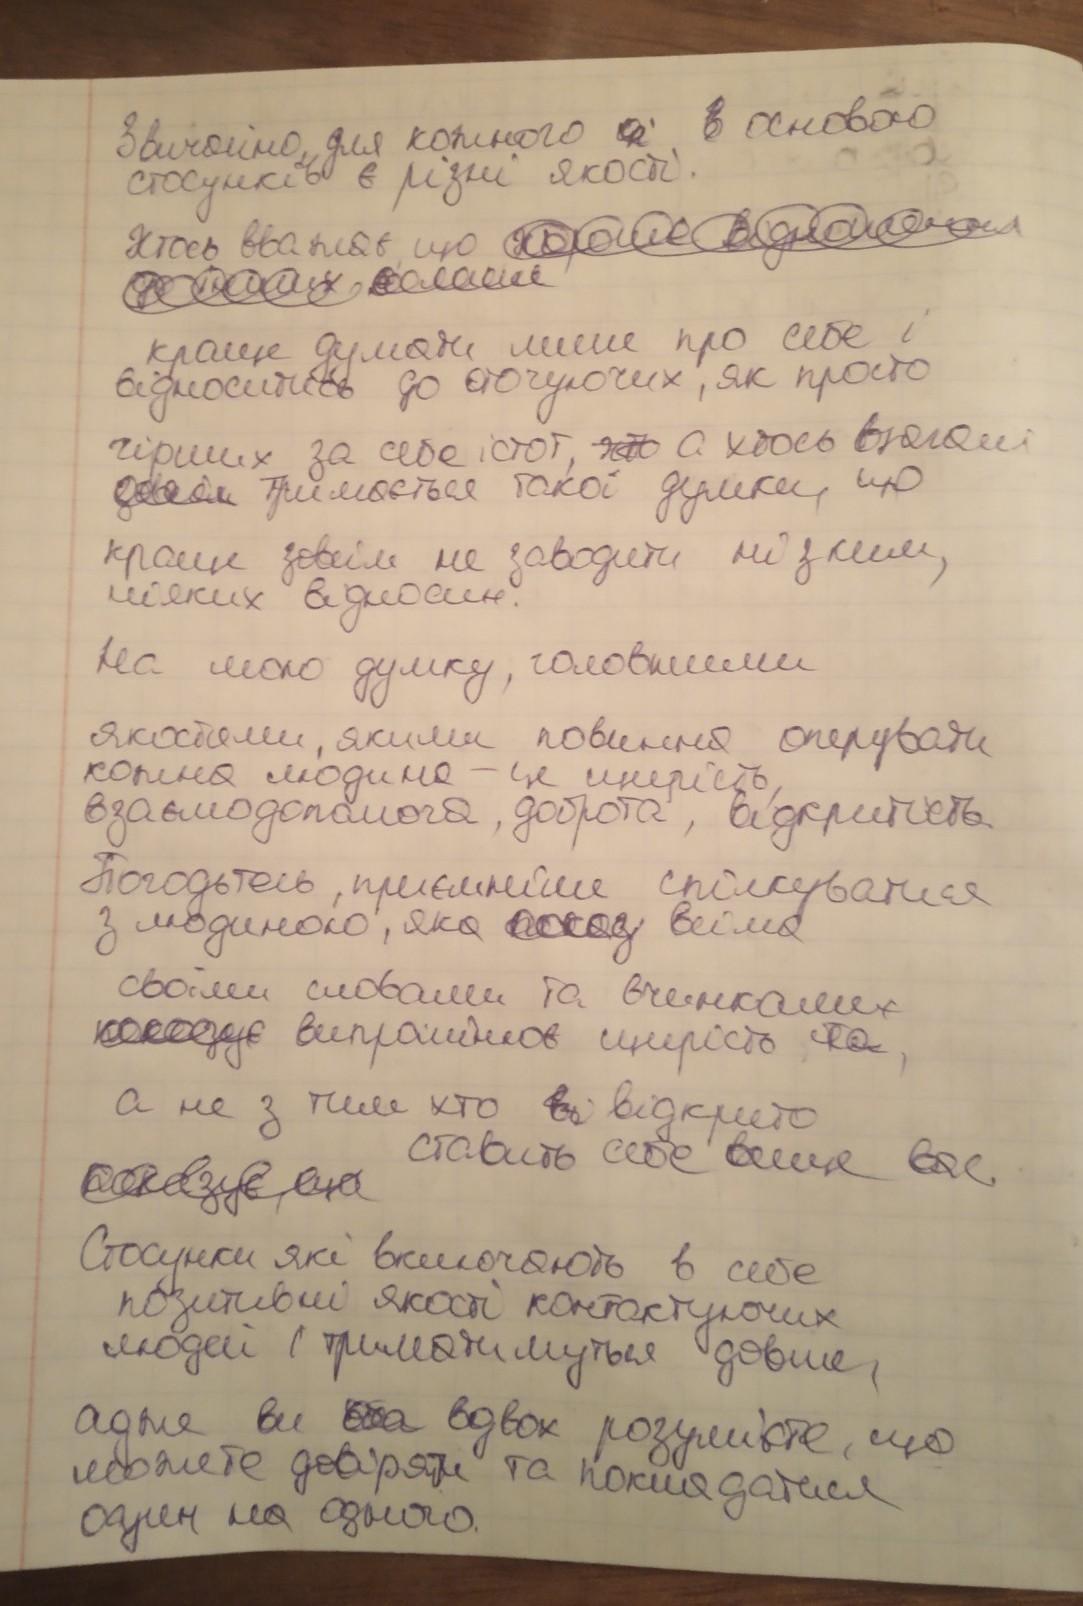 Звичайно, для кожного в основою
стосунків є різні якості.
Хтось вважає, що хороше відношення
до інших
краще думати лише про себе і
відноситись до оточуючих, як просто
гірших за себе істот, а хтось взагалі
тримається такої думки, що
краще зовсім не заводити ні з ким,
ніяких відносин.
На мою думку, головними
якостями, якими повинна оперувати
кожна людина – це щирість,
взаємодопомога, доброта, відкритість.
Погодьтесь, приємніше спілкуватися
з людиною, яка всіма
своїми словами та вчинками
випромінює щирість та,
а не з тим хто відкрито
ставить себе вище вас.
показує, що
Стосунки які включають в себе
позитивні якості контактуючих
людей і триматимуться довше,
адже ви вдвох розумієте, що
можете довіряти та покладатися
один на одного.